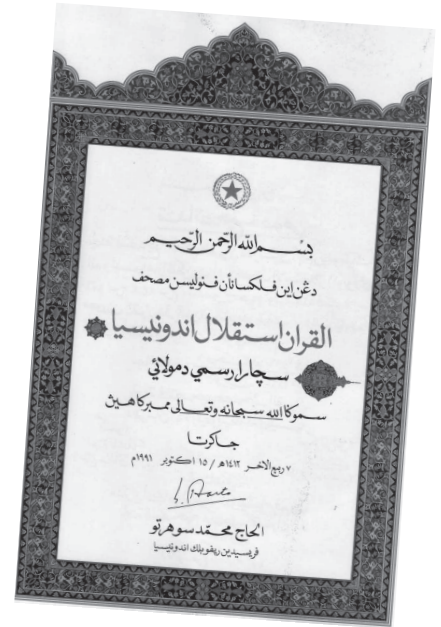 بسم الله الرحمن الرحيم
دڠن اين فلكسانأن فنوليسن مصحف
القران استقلال اندونيسيا
سچارا رسمي دمولائي
سموݢا الله سبحانه وتعالى ممبركاهيڽ
جاكرتا
٧ ربيع الاخر ١٤١٢ھ / ١٥ اكتوبر ١٩٩١م
الحاج محمد سوهرتو
فريسيدين ريفوبلك اندونيسيا